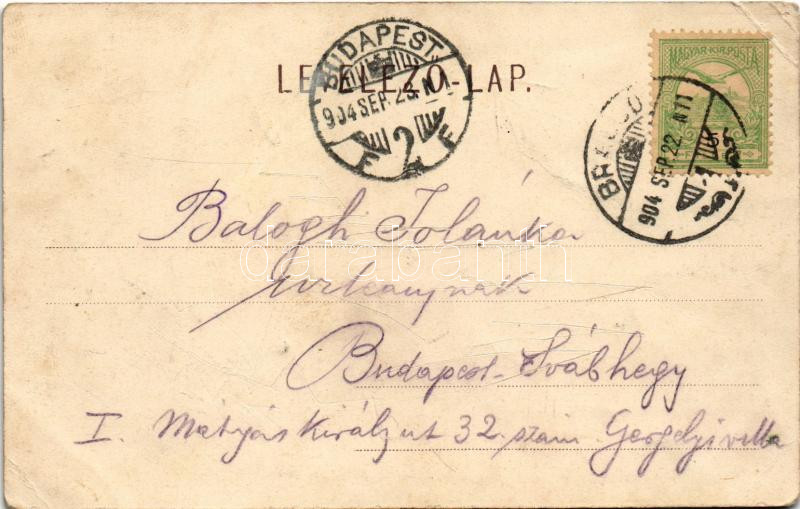 LEVELEZŐ-LAP.
BUDAPEST
904 SEP. 23. N
F 2 F
MAGYAR KIR. POSTA
BRASSÓ
904 SEP. 22. N11
Balogh Jolánka
úrleánynak
Budapest-Svábhegy
I. Mátyás Király út 32. szám Gergelyi villa
databanth